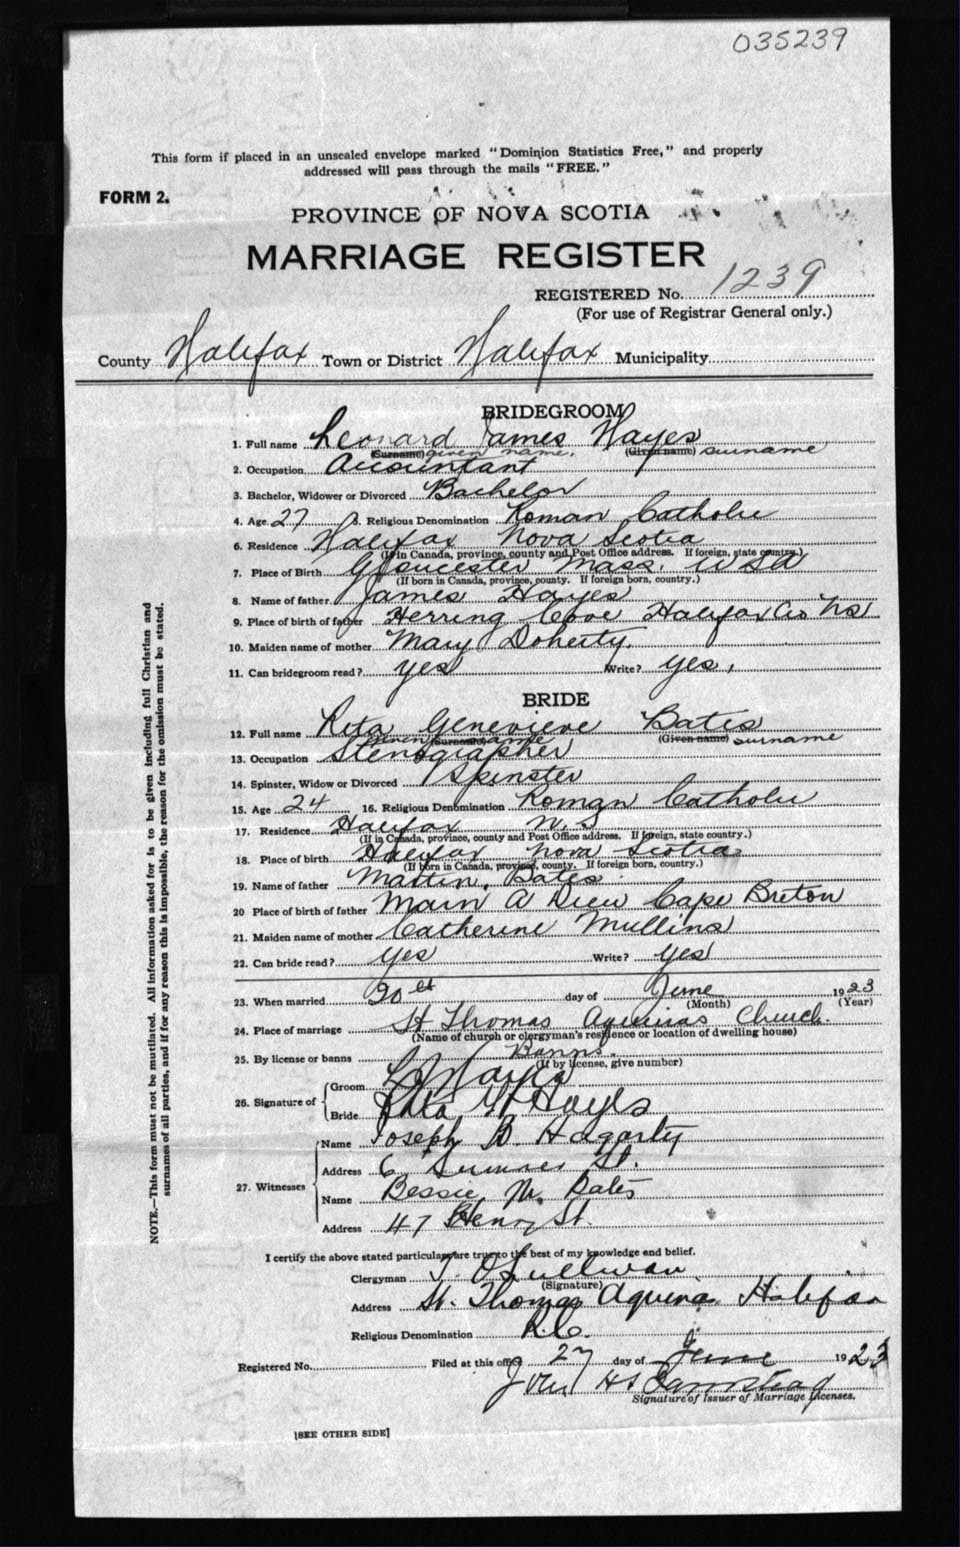 035239
This form if placed in an unsealed envelope marked "Dominion Statistics Free," and properly
addressed will pass through the mails "FREE."
FORM 2.
PROVINCE OF NOVA SCOTIA
MARRIAGE REGISTER
REGISTERED No. 1239
(For use of Registrar General only.)
County Halifax Town or District Halifax Municipality
BRIDEGROOM
1. Full name Leonard James Hayes
(Surname) given name. (Given name) surname
2. Occupation Accountant
3. Bachelor, Widower or Divorced Bachelor
4. Age 27 5. Religious Denomination Roman Catholic
6. Residence Halifax Nova Scotia
(If in Canada, province, county and Post Office address. If foreign, state country.)
7. Place of Birth Gloucester Mass. USA
(If born in Canada, province, county. If foreign born, country.)
8. Name of father James Hayes
9. Place of birth of father Herring Cove Halifax Co NS
10. Maiden name of mother Mary Doherty.
11. Can bridegroom read? yes Write? yes.
BRIDE
12. Full name Rita Genevieve Bates
given (Surname) name (Given name) surname
13. Occupation Stenographer
14. Spinster, Widow or Divorced Spinster
15. Age 24 16. Religious Denomination Roman Catholic
17. Residence Halifax N.S
(If in Canada, province, county and Post Office address. If foreign, state country.)
18. Place of birth Halifax Nova Scotia
(If born in Canada, province, county. If foreign born, country.)
19. Name of father Martin Bates
20 Place of birth of father Main A Dieu Cape Breton
21. Maiden name of mother Catherine Mullins
22. Can bride read? yes Write? yes
23. When married 20 day of June 1923
(Month) (Year)
24. Place of marriage St Thomas Aquinas Church.
(Name of church or clergyman's residence or location of dwelling house)
25. By license or banns Banns.
(If by license, give number)
26. Signature of Groom L Hayes
Bride Rita Hayes
27. Witnesses Name Joseph B. Hagarty
Address 6 St.
Name Bessie M. Bates
Address 47 Henry St.
I certify the above stated particulars are true to the best of my knowledge and belief.
Clergyman T. O'Sullivan
(Signature)
Address St. Thomas Aquinas Halifax
Religious Denomination R.C.
Registered No. Filed at this office 27 day of June 1923
Signature of Issuer of Marriage Licenses.
[SEE OTHER SIDE]
NOTE.—This form must not be mutilated. All information asked for is to be given including full Christian and
surnames of all parties, and if for any reason this is impossible, the reason for the omission must be stated.